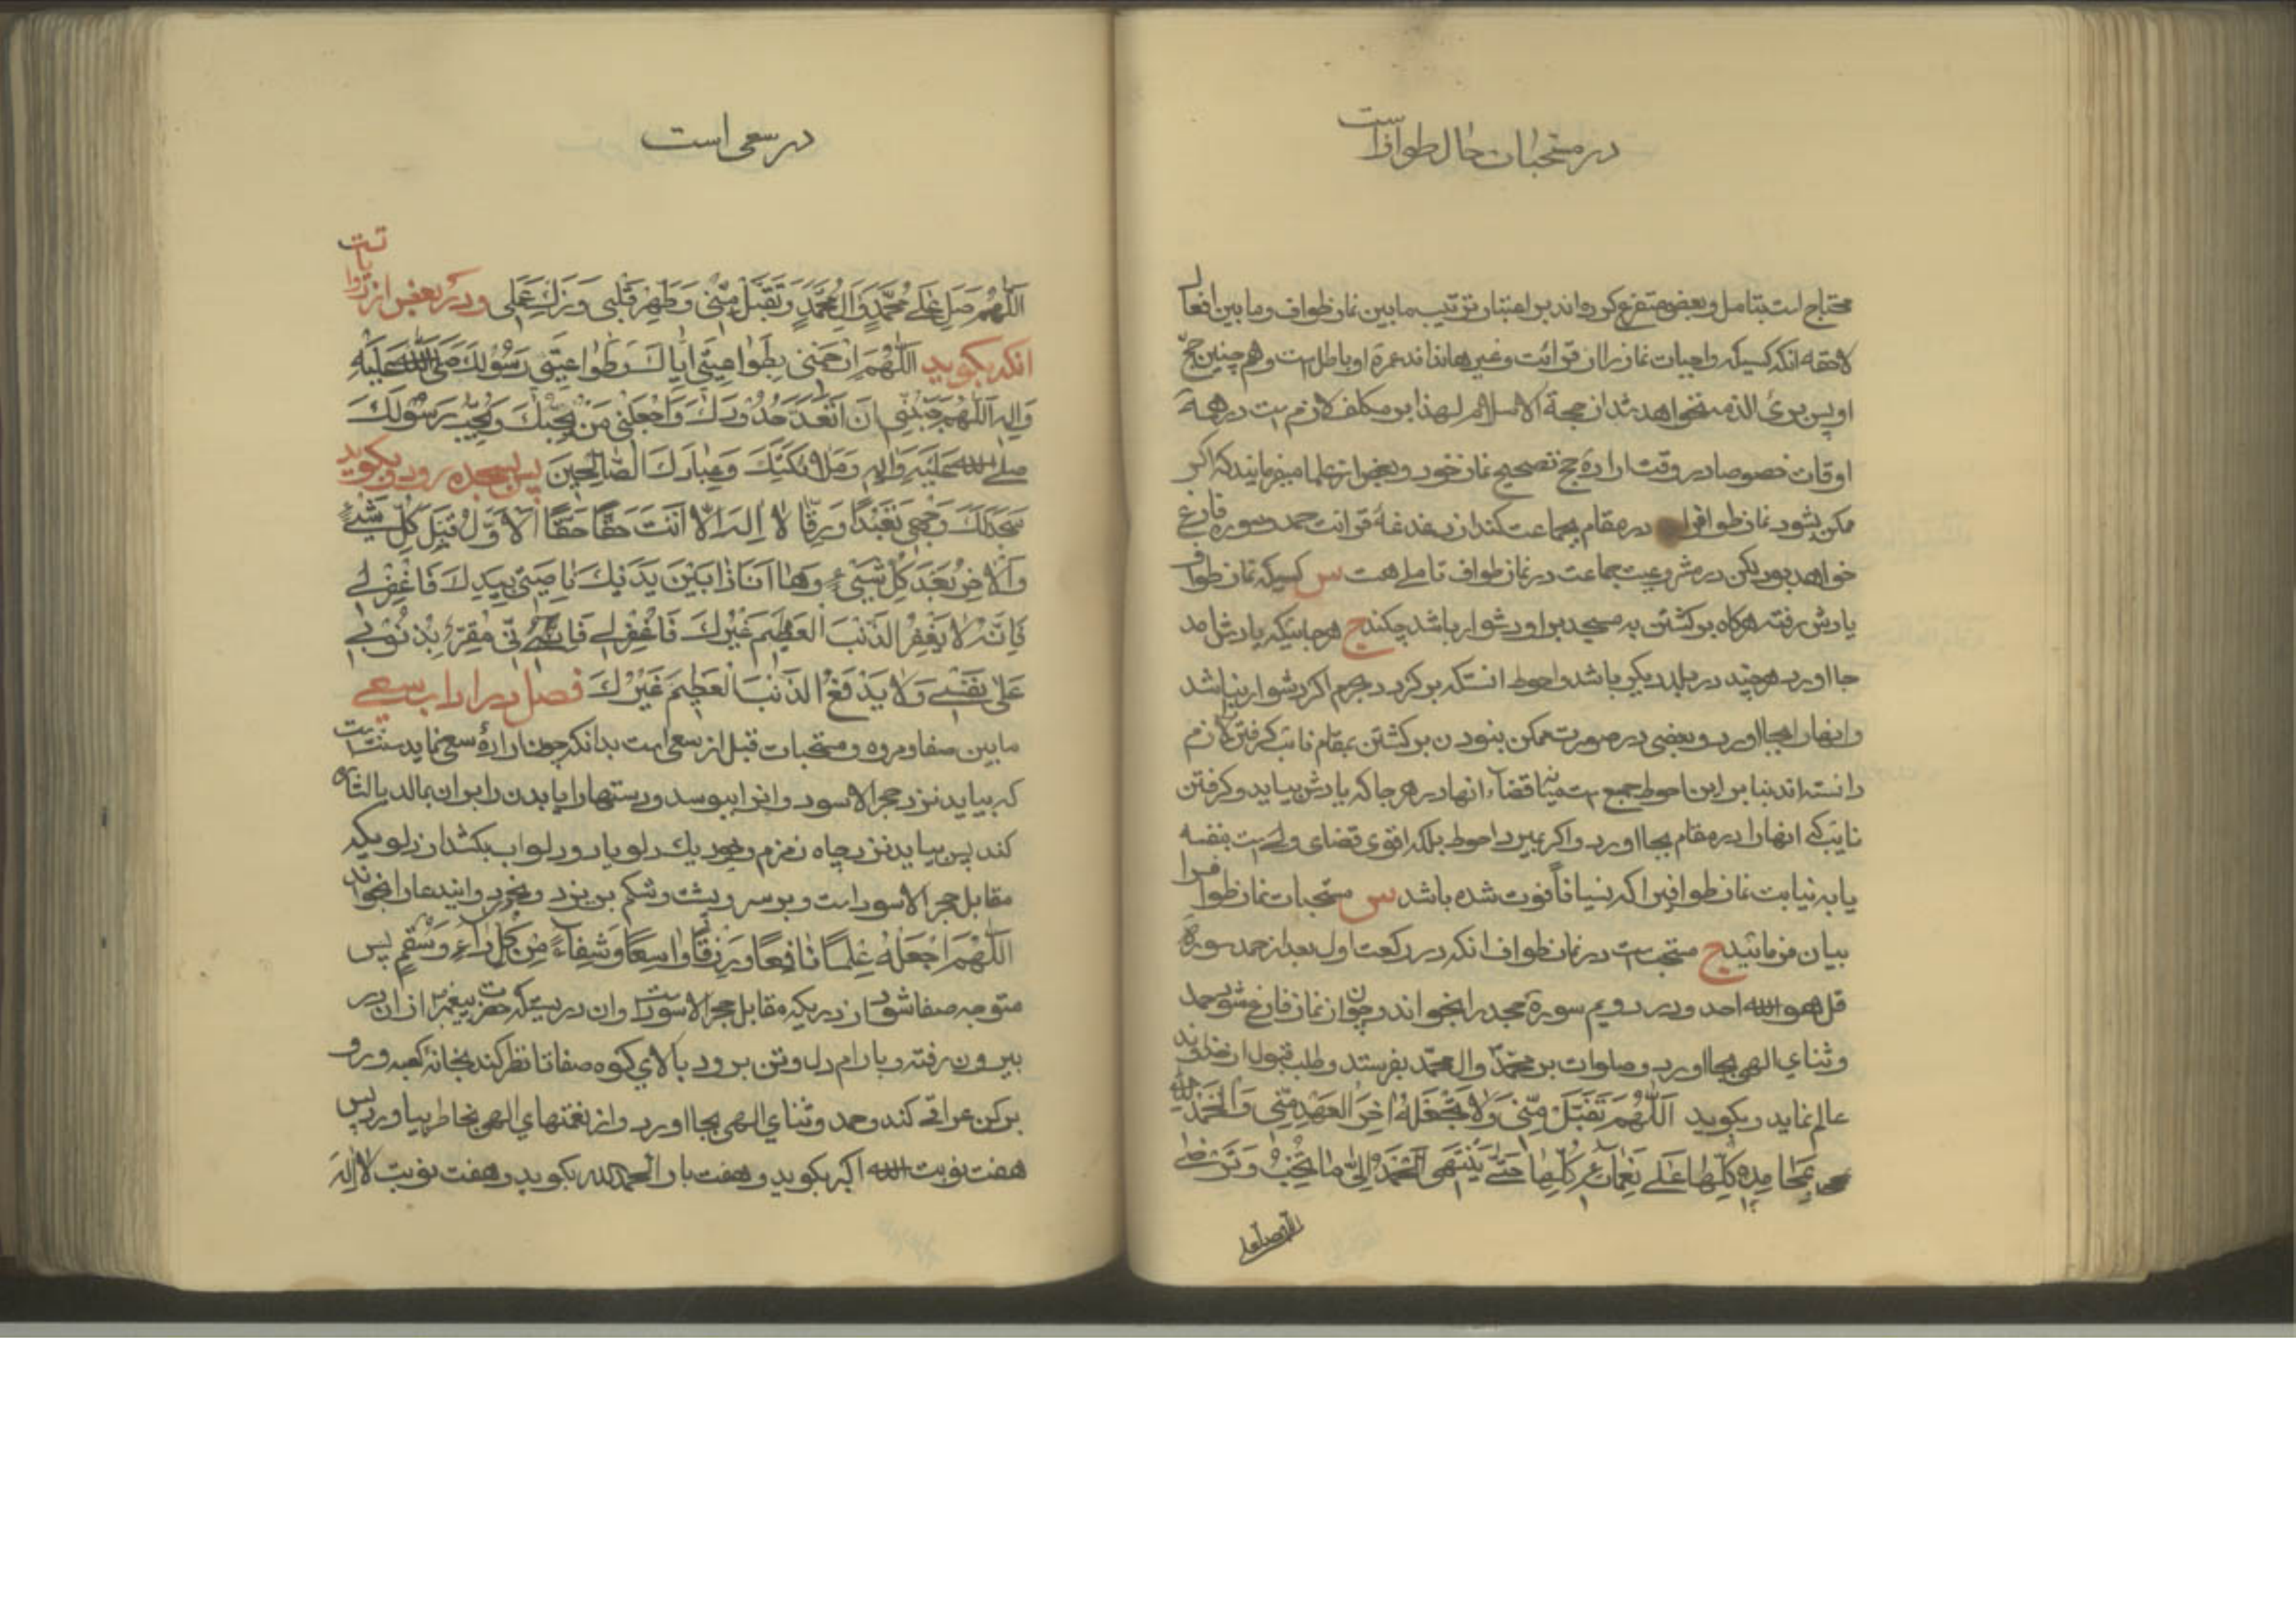 در مستحبات حال طوافست
محتاج است بتامل و بعضی متفرع کرده‌اند بر اعتبار ترتیب مابین نماز طواف و مابین افعال
لاحقه انکه کسیکه واجبات نماز را از قرائت و غیر ها نداند عمرۀ او باطل است و هم چنین حج
او پس برئ الذمه نخواهد شد از حجة الاسلام لهذا بر مکلف لازم است در همۀ
اوقات خصوصا در وقت ارادۀ حج تصحیح نماز خود و بعضی از علما میفرمایند که اکر
ممکن بشود نماز طواف را در مقام بجماعت کند از دغدغۀ قرائت حمد و سوره فارغ
خواهد بود لکن در مشروعیت جماعت در نماز طواف تاملی هست س کسیکه نماز طواف
یادش رفته هرکاه برکشتن به مسجد بر او دشوار باشد چکند ج هر جائیکه یادش امد
بجا اورد هر چند در بلد دیکر باشد و احوط انستکه برکردد بحرم اکر دشوار نباشد
و انها را بجا اورد و بعضی در صورت ممکن نبودن برکشتن بمقام نائب کرفتن را لازم
دانسته‌اند بنا بر این احوط جمع است میانه قضاء انها در هر جا که یادش بیاید و کرفتن
نایب که انها را در مقام بجا اورد و اکر بمیرد احوط بلکه اقوی قضای ولی است بنفسه
یا به نیابت نماز طواف را اکه نسیاناً فوت شده باشد س مستحبات نماز طواف را
بیان فرمائید ج مستحب است در نماز طواف انکه در رکعت اول بعد از حمد سورۀ
قل هو الله احد و در دویم سورۀ جحد را بخواند و چون از نماز فارغ شود حمد
و ثنای الهی بجا اورد و صلوات بر محمّد و ال محمّد بفرستد و طلب قبول از خداوند
عالم نماید و بکوید اَللّٰهُمَّ تَقَبَّلْ مِنّی وَلا تَجْعَلْهُ اٰخِرَ الْعَهْدِ مِنّی وَالْحَمْدُ لِلّٰهِ
بِمَحامِدِهِ کُلِّها عَلی نَعْمائِهِ کُلِّها حَتّی یَنْتَهِیَ الْحَمْدُ اِلی ما یُحِبُّ وَ تَرْضی
اللّهم صل علی
در سعی است
اَللّٰهُمَّ صَلِّ عَلی مُحَمَّدٍ وَالِ مُحَمَّدٍ وَتَقَبَّلْ مِنّی وَطَهِّرْ قَلْبی وَزَکِّ عَمَلی و در بعض از روایات است
انکه بکوید اَللّٰهُمَّ ارْحَمْنی بِطَواعِیَتی اِیّاکَ وَطَواعِیَتی رَسُولَکَ صَلَّی اللهُ عَلَیْهِ
وَالِهِ اَللّٰهُمَّ جَنِّبْنی اَنْ اَتَعَدّی حُدُودَکَ وَاجْعَلْنی مِمَّنْ یُحِبُّکَ وَیُحِبُّ رَسُولَکَ
صلی الله عَلَیْهِ وَالِهِ وَمَلائِکَتَکَ وَعِبادَکَ الصّالِحینَ پس بسجده رود و بکوید
سَجَدَ لَکَ وَجْهی تَعَبُّدًا وَرِقًّا لا اِلهَ اِلّا اَنْتَ حَقًّا حَقًّا اَلْاَوَّلُ قَبْلَ کُلِّ شَیْءٍ
وَالْاٰخِرُ بَعْدَ کُلِّ شَیْءٍ وَها اَنَا ذا بَیْنَ یَدَیْکَ ناصِیَتی بِیَدِکَ فَاغْفِرْ لی
فَاِنَّهُ لا یَغْفِرُ الذَّنْبَ الْعَظیمَ غَیْرُکَ فَاغْفِرْ لی فَاِنّی مُقِرٌّ بِذُنُوبی
عَلی نَفْسی وَلا یَدْفَعُ الذَّنْبَ الْعَظیمَ غَیْرُکَ فصل در اداب سعی
مابین صفا و مروه و مستحبات قبل از سعی است بدانکه چون ارادۀ سعی نماید سنت است
که بیاید نزد حجر الاسود و انرا ببوسد و دستها را یا بدن را بر ان بمالد یا اشاره
کند پس بیاید نزد چاه زمزم و خود یك دلو یا دو دلو اب بکشد از دلویکه
مقابل حجر الاسود است و بر سر و پشت و شکم بریزد و بخورد و ایندعا را بخواند
اَللّٰهُمَّ اجْعَلْهُ عِلْمًا نافِعًا وَرِزْقًا واسِعًا وَشِفاءً مِنْ کُلِّ داءٍ وَسُقْمٍ پس
متوجه صفا شود از دریکه مقابل حجر الاسود است و ان دریستکه حضرت پیغمبر از ان در
بیرون رفته و بارام دل و تن برود بالای کوه صفا تا نظر کند بخانۀ کعبه و رو
برکن عراقی کند و حمد و ثنای الهی بجا اورد و از نعمتهای الهی بخاطر بیاورد پس
هفت نوبت الله اکبر بکوید و هفت بار الحمد لله بکوید و هفت نوبت لا اِلهَ